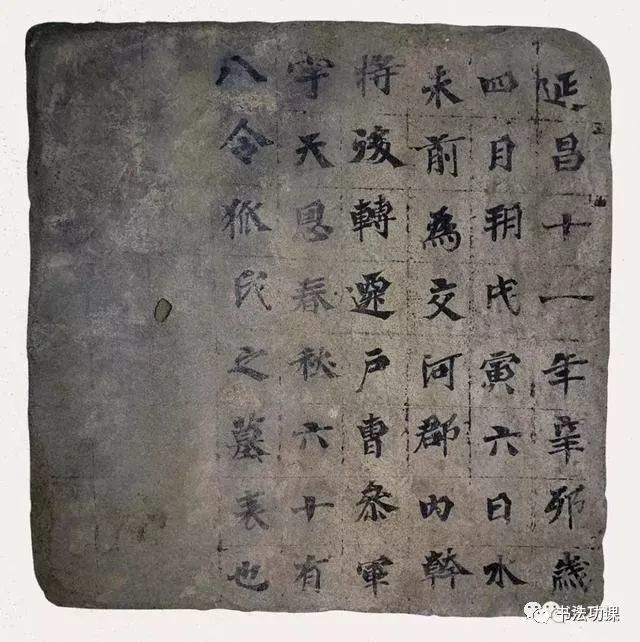 延昌十一年辛卯歲
四月朔戊寅六日水
未前為交河郡內幹
將後轉遷戶曹參軍
字天恩春秋六十有
八令狐氏之墓表也
书法功课